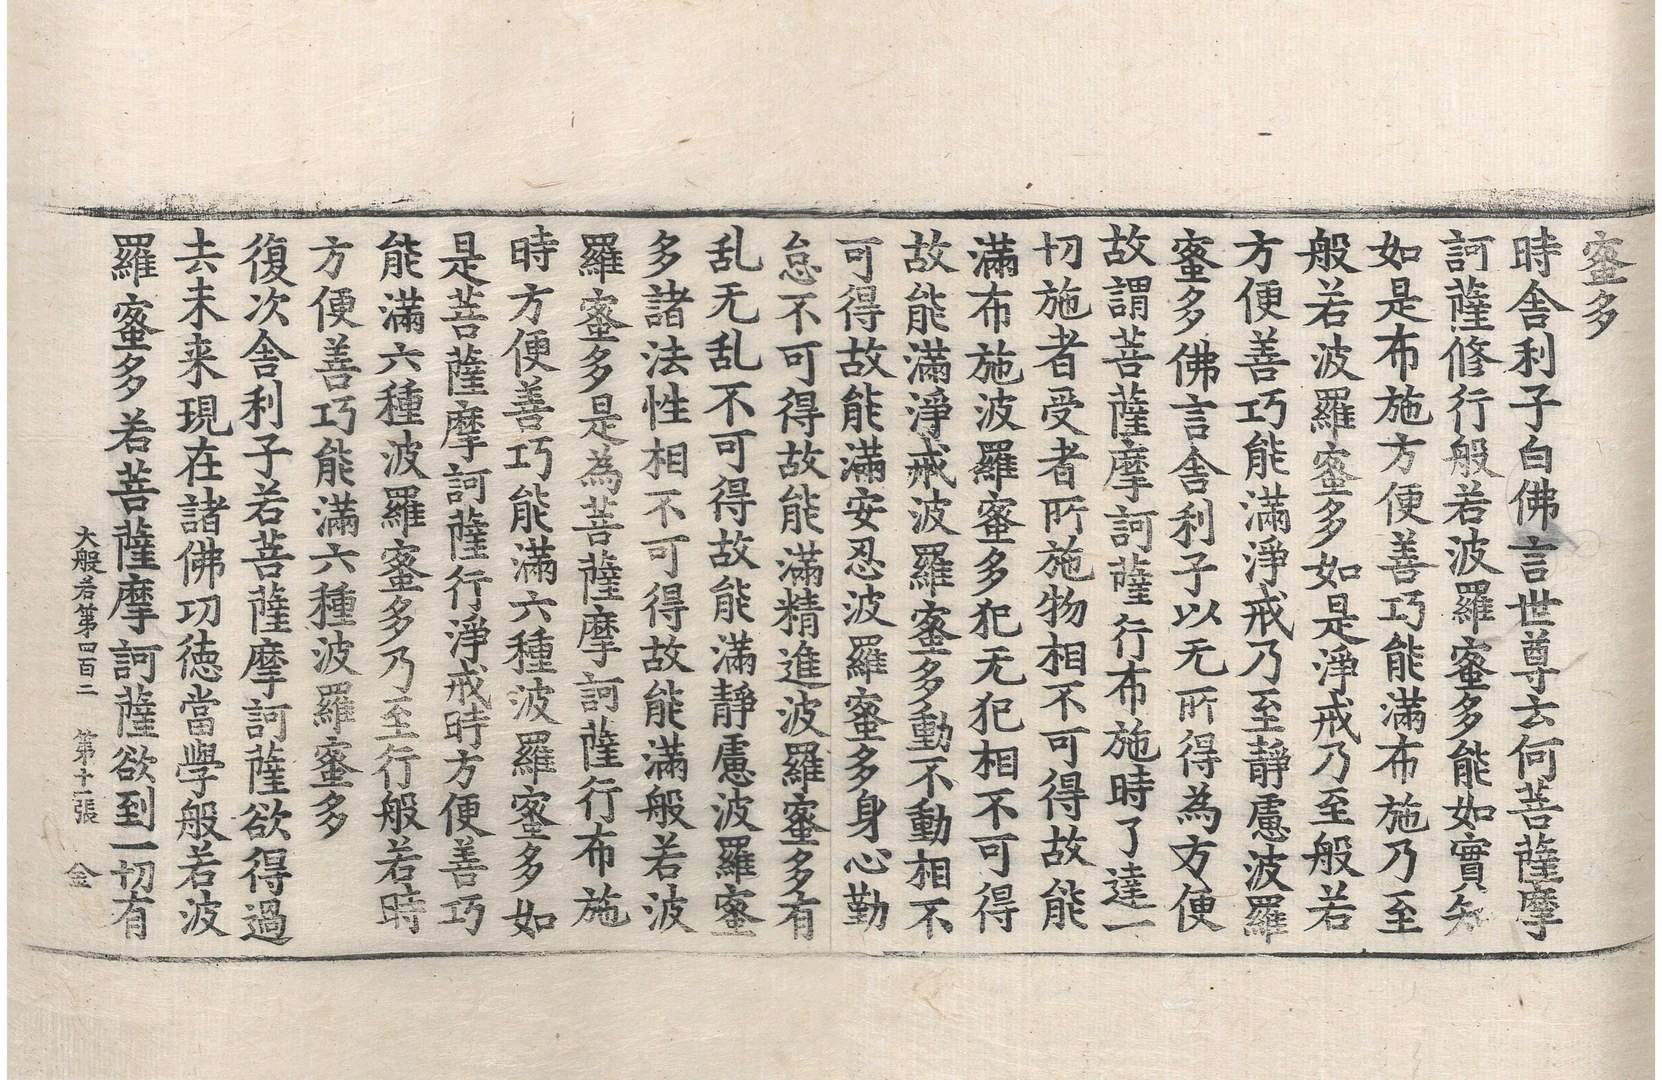 蜜多
時舍利子白佛言世尊云何菩薩摩
訶薩修行般若波羅蜜多能如實知
如是布施方便善巧能滿布施乃至
般若波羅蜜多如是淨戒乃至般若
方便善巧能滿淨戒乃至靜慮波羅
蜜多佛言舍利子以无所得為方便
故謂菩薩摩訶薩行布施時了達一
切施者受者所施物相不可得故能
滿布施波羅蜜多犯无犯相不可得
故能滿淨戒波羅蜜多動不動相不
可得故能滿安忍波羅蜜多身心勤
怠不可得故能滿精進波羅蜜多有
乱无乱不可得故能滿靜慮波羅蜜
多諸法性相不可得故能滿般若波
羅蜜多是為菩薩摩訶薩行布施
時方便善巧能滿六種波羅蜜多如
是菩薩摩訶薩行淨戒時方便善巧
能滿六種波羅蜜多乃至行般若時
方便善巧能滿六種波羅蜜多
復次舍利子若菩薩摩訶薩欲得過
去未来現在諸佛功徳當學般若波
羅蜜多若菩薩摩訶薩欲到一切有
大般若第四百二 第十一張 金